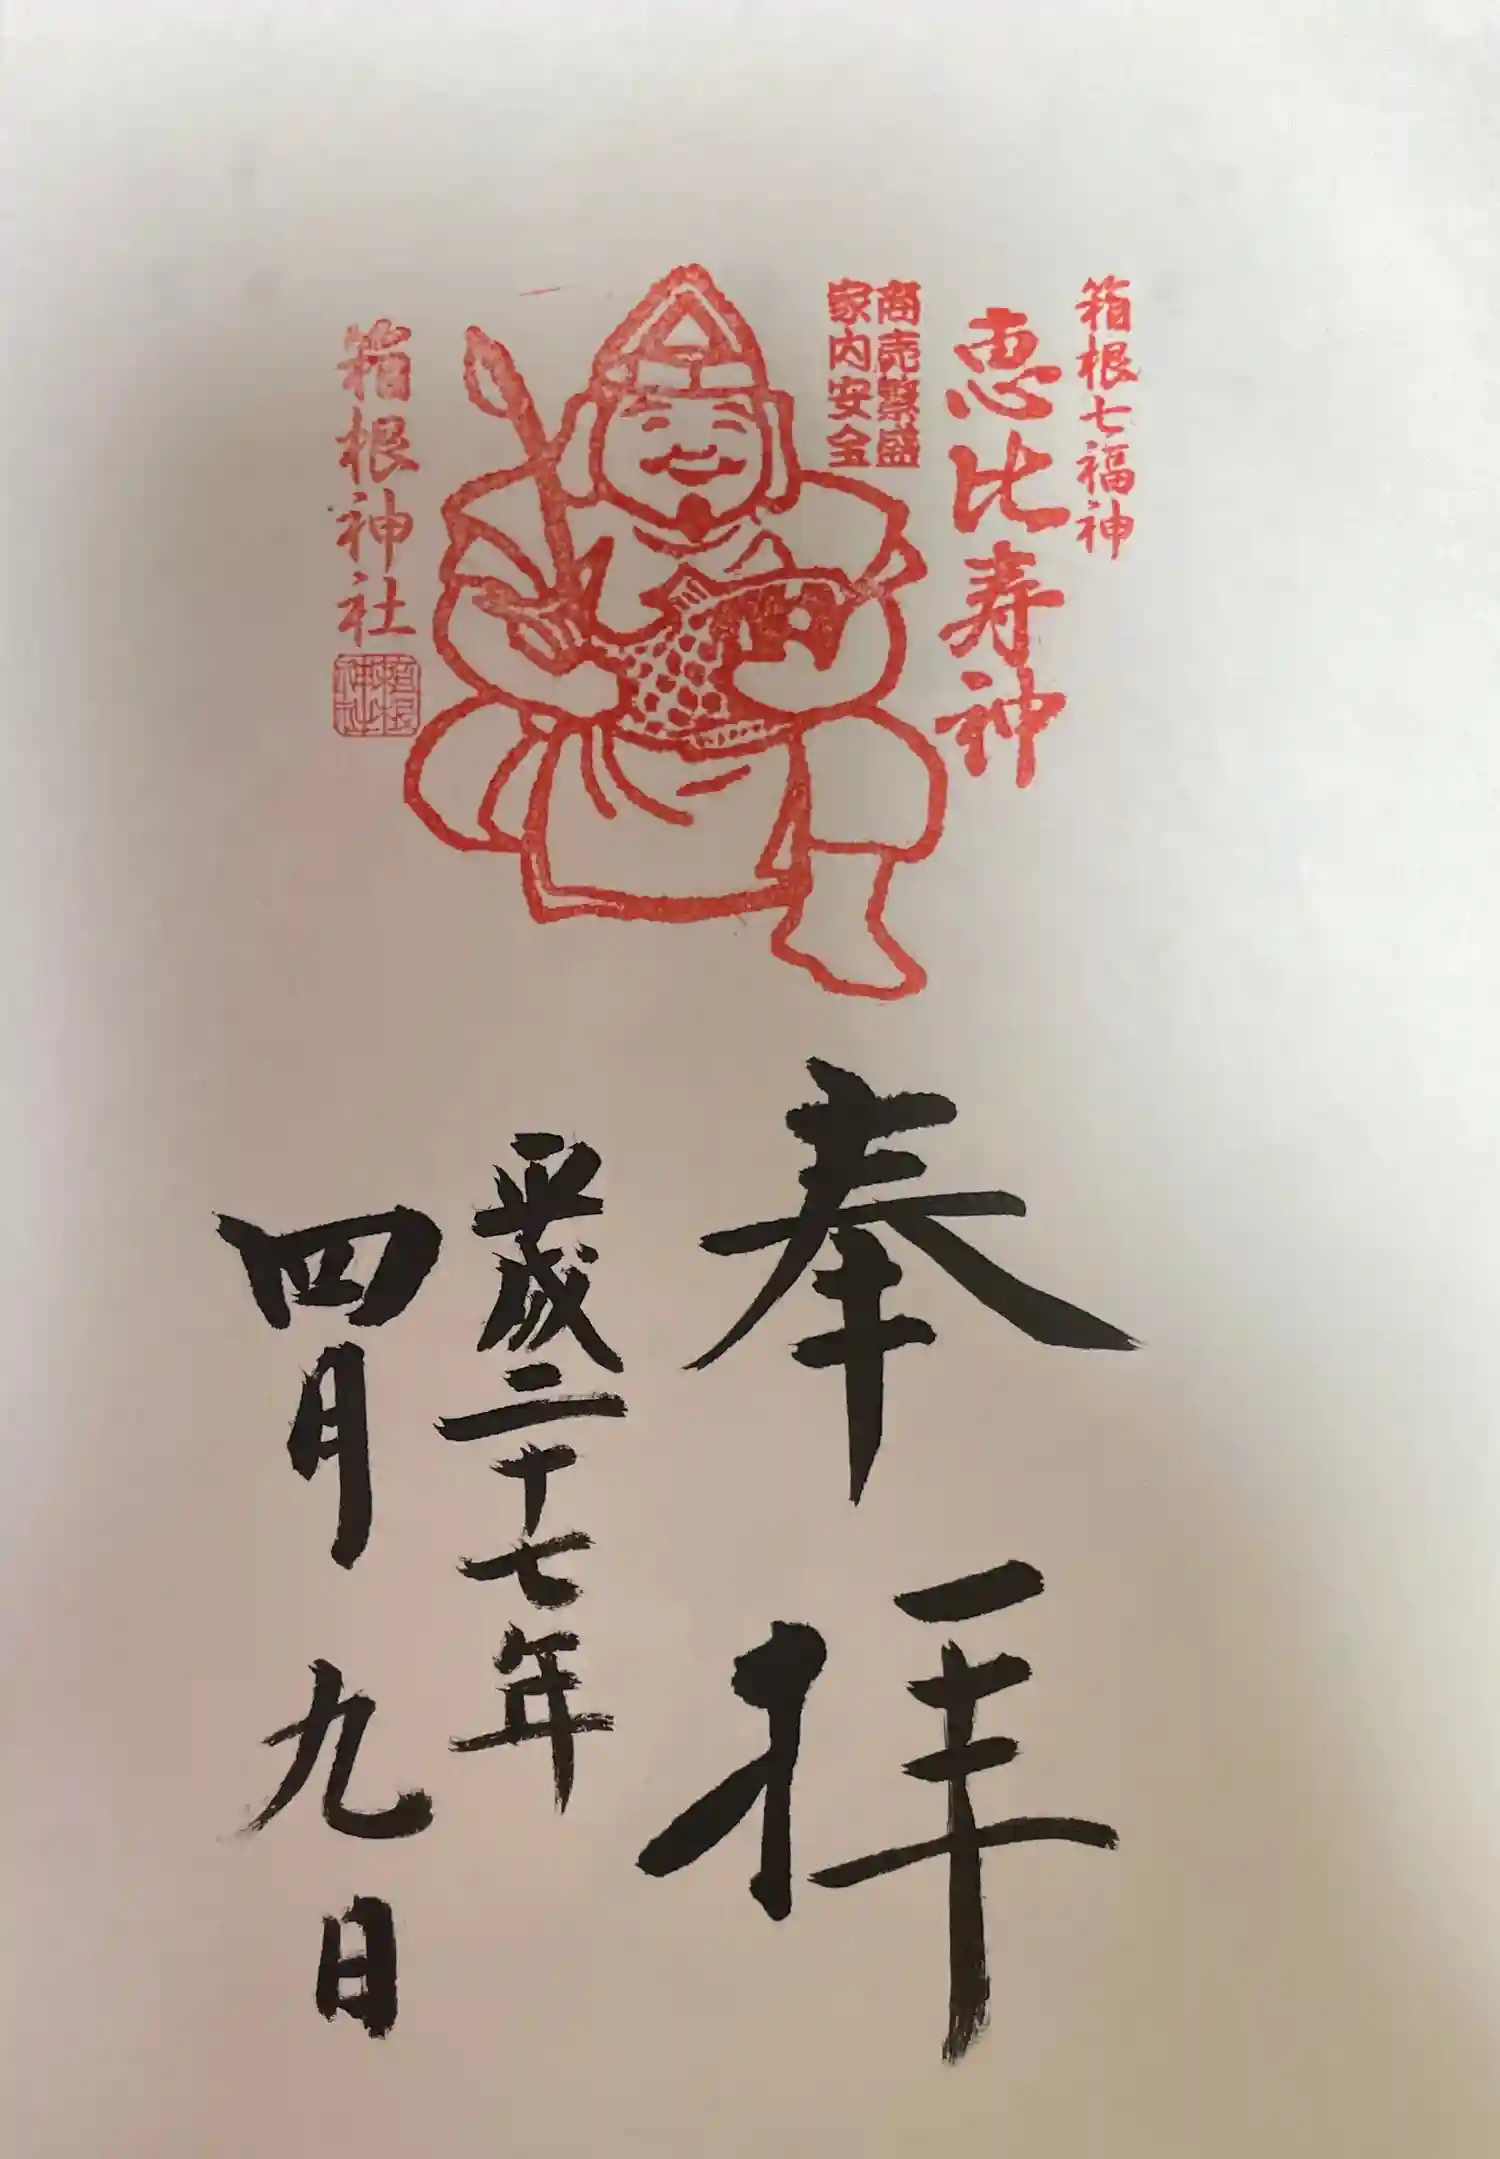 箱根七福神
恵比寿神
商売繁盛
家内安全
箱根神社
箱根
神社
奉拝
平成二十七年
四月九日